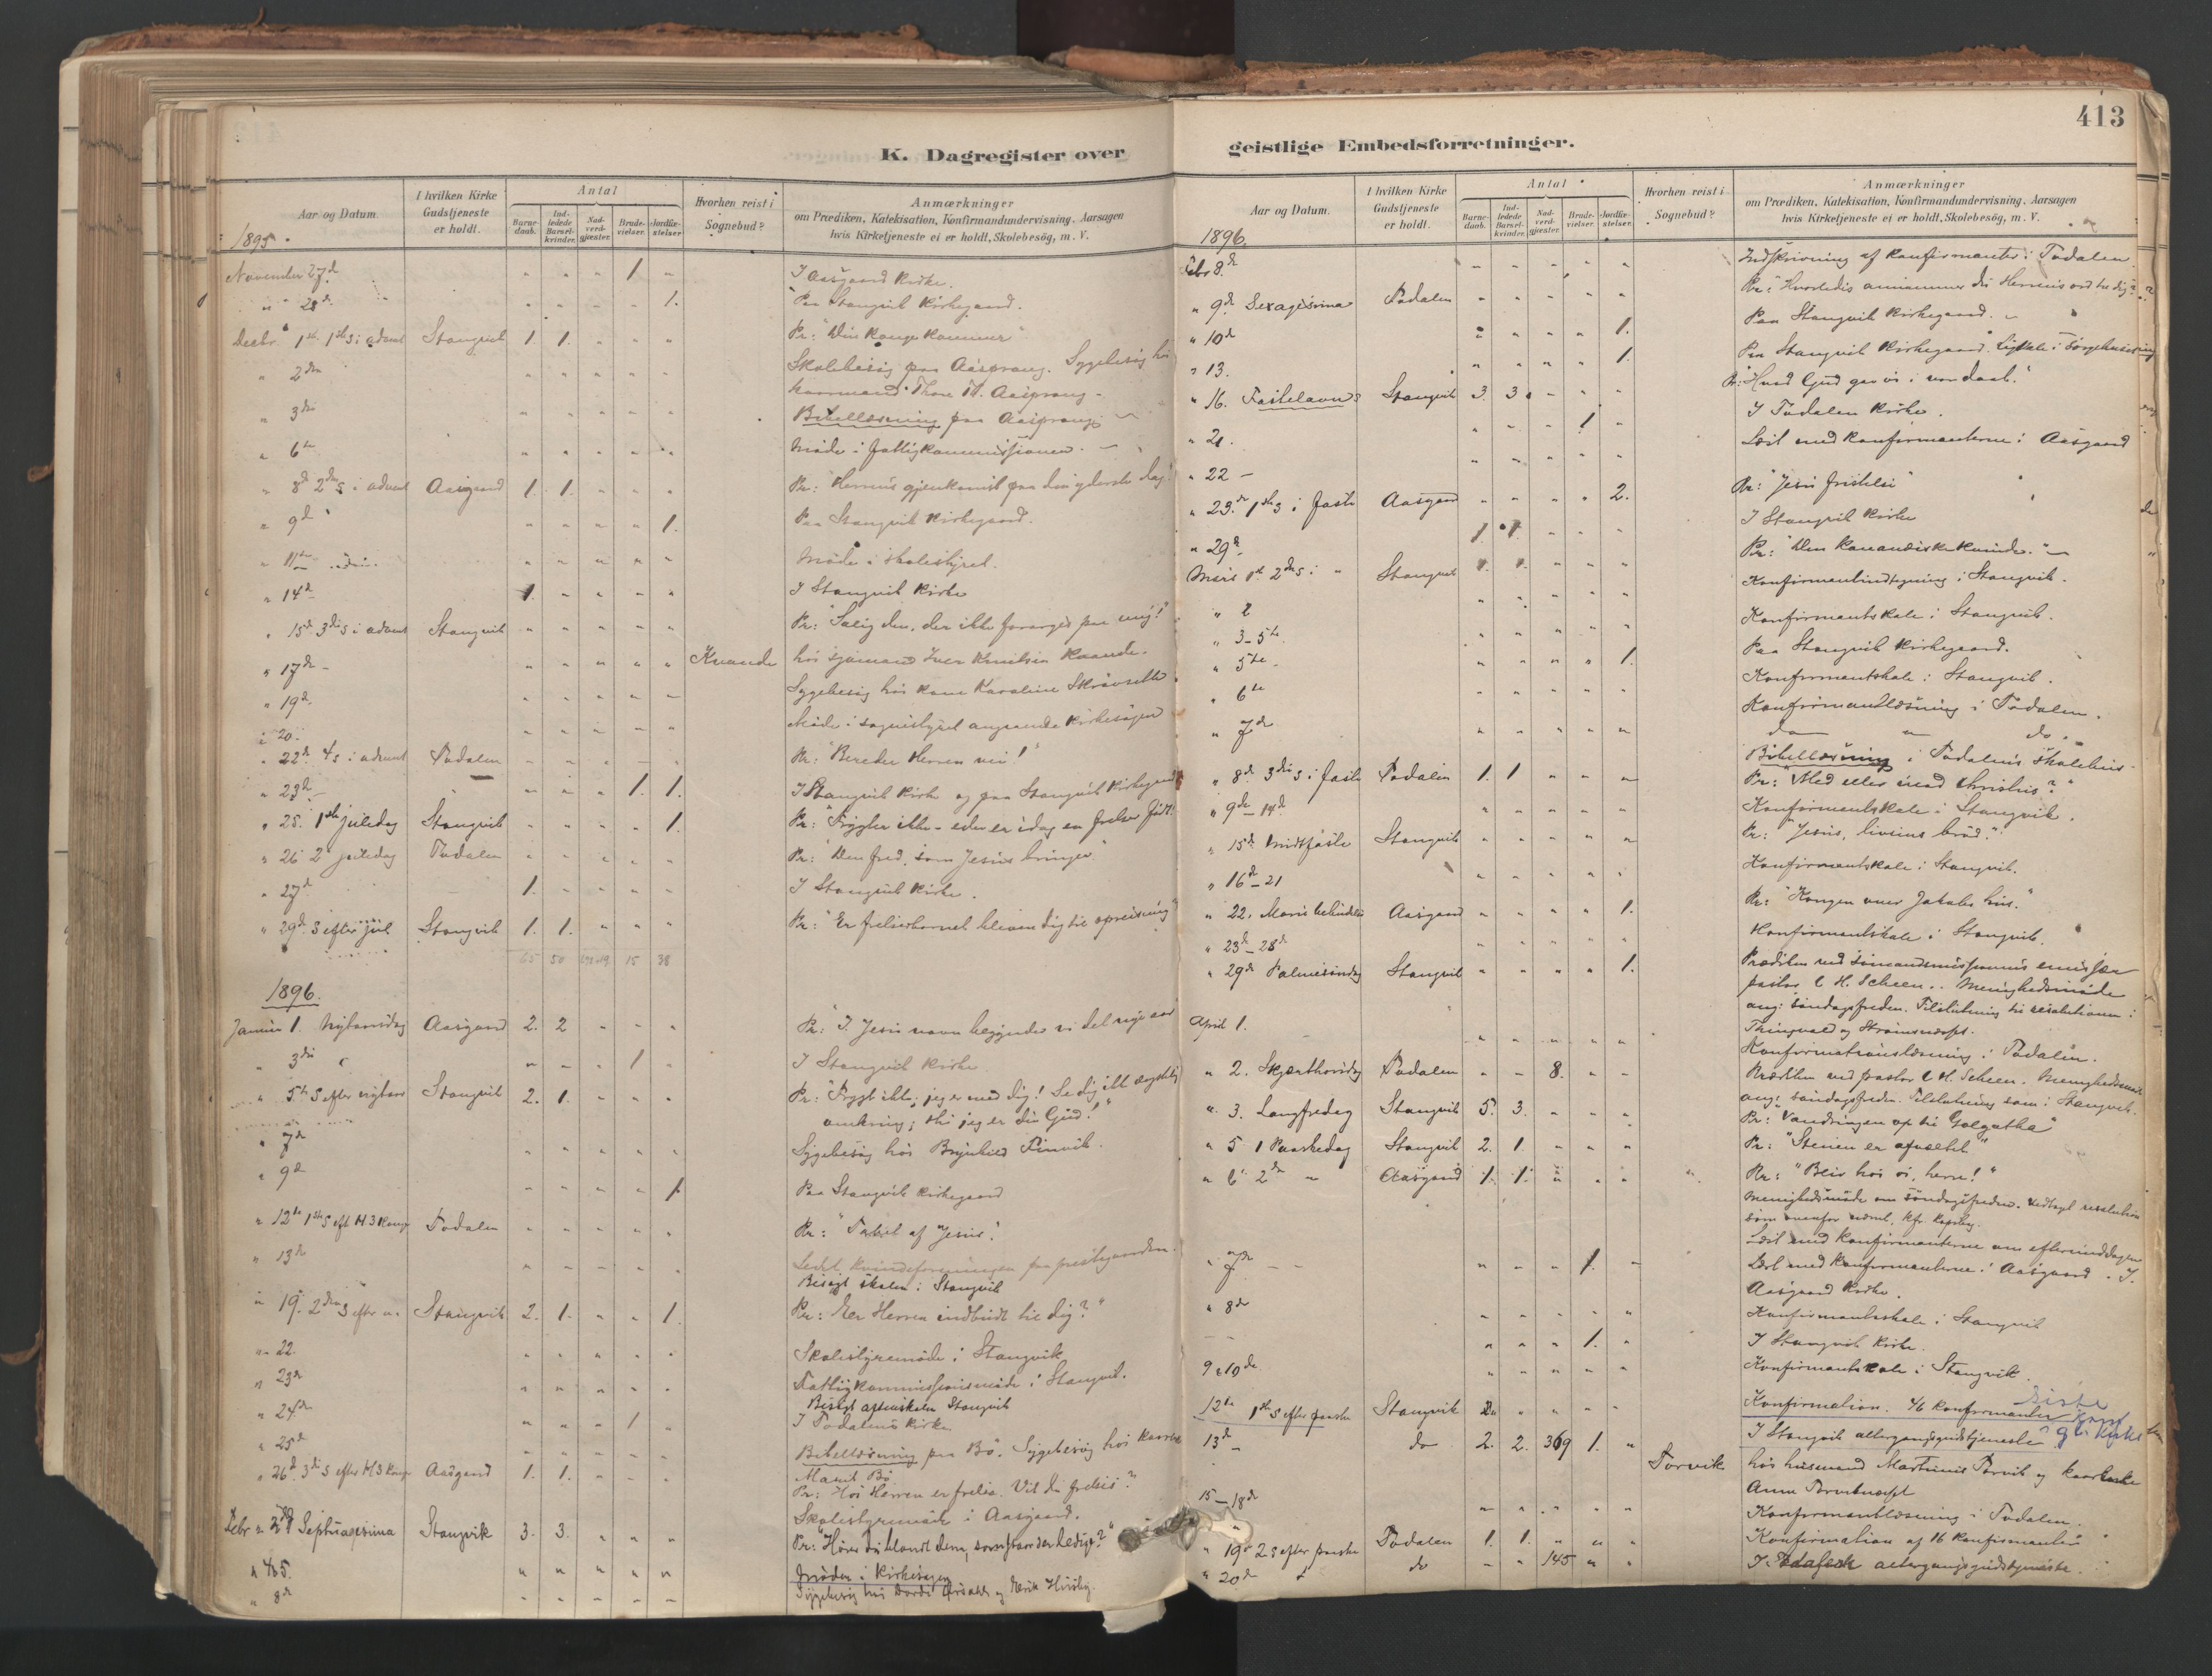 413
K. Dagregister over
Aar og Datum.
I hvilken Kirke Gudstjeneste er holdt.
Antal
Barnedaab.
Indledede Barselkvinder.
Nadverdgjæster.
Brudevielser.
Jordfæstelser
Hvorhen reist i Sognebud?
Anmærkninger
om Prædiken, Katekisation, Konfirmandundervisning, Aarsagen
hvis Kirketjeneste ei er holdt, Skolebesög, m. V.
1895.
November 27d " " " 1 " I Aasgaard Kirke.
" 28d " " " " 1. Paa Stangvik Kirkegaard.
Decbr. 1st. 1ste S i advent Stangvik 1. 1. " " " Pr: "Din konge kommer"
" 2den " " " " " Skolebesög paa Aasprang. Sygebesög hos
Thore Aasprang.
" 3die " " " " " Bibellæsning paa Aasprang.
" 6te " " " " " Møde i fattigkommissionen.
" 8d 2den S i advent Aasgaard 1. 1. " " " Pr: "Herrens gjenkomst paa den yderste dag."
" 9d " " " " 1. Paa Stangvik Kirkegaard.
" 11te " " " " " Møde i skolestyret.
" 14d 1. " " " " I Stangvik Kirke
" 15d 3die S i advent Stangvik " " " " " Pr: "Salig den, der ikke forarges paa mig!"
" 17de " " " " " Kvande hos Iver Knutsen Kvande.
" 19d. " " " " " Sygebesög hos kone Karoline
" 20. " " " " " Møde i sognestyret angaaende kirkesagen
" 22d 4 S i advent Todalen " " " " " Pr: "Bereder Herren vei!"
" 23d " " " 1. 1. I Stangvik Kirke og paa Stangvik Kirkegaard
" 25. 1ste juledag Stangvik " " " " 1. Pr: "Frygter ikke - eder er idag en frelser født."
" 26 2 juledag Todalen " " " " " Pr: "Den fred, som Jesus bringer."
" 27d 1. " " " " I Stangvik Kirke.
" 29d. S efter jul Stangvik 1. 1. " " " Pr: "Er frelserbarnet bleven dig til opreisning"
65 50 15 38
1896.
Januar 1. Nytaarsdag Aasgaard 2. 2 " " " Pr: "I Jesu navn begynder vi det nye aar
" 3die " " " 1 " I Stangvik Kirke
" 5te S efter nytaar Stangvik 2. 1. " " " Pr: "Frygt ikke, jeg er med dig! Se dig ikke ængstelig
omkring; thi jeg er din Gud!"
" 7de " " " " " Sygebesög hos Brynhild Finvik.
" 9de " " " " 1. Paa Stangvik Kirkegaard
" 12te 1ste S eft H. 3 Kong Todalen " " " " " Pr: "Tabet af Jesus."
" 13de " " " " " Ledet kvindeforeningen paa prestegaarden.
Besøgt skolen i Stangvik
" 19. 2den S efter " Stangvik 2. 1. " " 1. Pr: "Er Herren indbudt til dig?"
" 22. " " " " " Skolestyremøde i Stangvik
" 23de " " " " " Fattigkommissionsmøde i Stangvik.
Besøgt aftenskolen Stangvik
" 24de " " " 1 " I Todalens Kirke.
" 25de " " " " " Bibellæsning paa Bö. Sygebesög hos
Marit Bö
" 26d. 3die S efter H 3 Kong Aasgaard 1. 1. " " " Pr: Hos Herren er frelse. Vil du frelses?
Skolestyremøde i Aasgaard.
Febr " 2d Septuagesima Stangvik 3. 3. " " " Pr: "Hører du blandt dem, som staar der ledige?"
" 4 & 5. " " " " " Møder i kirkesagen
" 8de " " " " " Sygebesög hos
geistlige Embedsforretninger.
Aar og Datum.
I hvilken Kirke Gudstjeneste er holdt.
Antal
Barnedaab.
Indledede Barselkvinder.
Nadverdgjæster.
Brudevielser.
Jordfæstelser
Hvorhen reist i Sognebud?
Anmærkninger
om Prædiken, Katekisation, Konfirmandundervisning, Aarsagen
hvis Kirketjeneste ei er holdt, Skolebesög, m. V.
1896.
Febr 8.de " " " " " Indskrivning af konfirmanter i Todalen.
" 9de Sexagesima Todalen " " " " " Pr: "Hvorledes annammer du Herrens ord til dig?"
" 10de " " " " 1. Paa Stangvik Kirkegaard.
" 13. " " " " 1. Paa Stangvik Kirkegaard. Ligtale i Sörgehuset
" 16. Fastelavns Stangvik 3. 3. " " " Pr: "Hvad Gud gav os i vor daab."
" 21. " " " 1 " I Todalen Kirke.
" 22 - " " " " " Læst med konfirmanterne i Aasgaard
" 23.de 1ste S i faste Aasgaard " " " " 2. Pr: "Jesu fristelse"
" 29d. 1. 1. " " " I Stangvik Kirke
Mars 1st 2den S i " Stangvik 1. 1. " " " Pr: "Den kananæiske kvinde."
" 2 " " " " " Konfirmantindtegning i Stangvik.
" 3-5te " " " " " Konfirmantskole i Stangvik.
" 5te " " " " 1. Paa Stangvik Kirkegaard.
" 6te " " " " " Konfirmantskole i Stangvik.
" 7de " " " " " Konfirmantlæsning i Todalen.
do " do.
Bibellæsning i Todalens Skolehus
" 8de 3die S i faste Todalen 1. 1 " " " Pr: "Med eller mod Christus?"
" 9de - 14d " " " " " Konfirmantskole i Stangvik.
" 15de Midtfaste Stangvik " " " " " Pr: "Jesus, livsens brød."
" 16de - 21 " " " " " Konfirmantskole i Stangvik.
" 22. Marie bebudelse Aasgaard " " " " 1. Pr: "Kongen over Jakobs hus."
" 23de - 28de " " " " " Konfirmantskole i Stangvik.
" 29de Palmesöndag Stangvik " " " " 1. Prædiken ved sömandsmissionens emissær
pastor C H. Scheen. Menighedsmøde
ang: søndagsfreden. Tilslutning til resolutionen i
Thingvold og Strømsnæsset.
April 1. " " " " " Konfirmationslæsning i Todalen.
" 2. Skjærthorsdag Todalen " " 8. " " Prædiken ved pastor C H. Scheen. Menighedsmøde
ang: søndagsfreden. Tilslutning som i Stangvik.
" 3. Langfredag Stangvik 5. 3. " " " Pr: "Vandringen op til Golgatha"
" 5 1 Paaskedag Stangvik 2. 1. " " " Pr: "Stenen er afvæltet"
" 6 2de " Aasgaard 1. 1. " " " Pr: "Bliv hos os, herre!"
Menighedsmøde om söndagsfreden. Vedtaget resolution
som ovenfor nævnt, kfr. kopibog.
Læst med konfirmanterne om eftermiddagen
" 7de " " " 1. " Læst med konfirmanterne i Aasgaard. I
Aasgaard Kirke.
" 8de " " " " " Konfirmantskole i Stangvik
" " " 1. " I Stangvik Kirke.
9 & 10de " " " " " Konfirmantskole i Stangvik.
12te 1ste S efter paaske Stangvik 2. " " " " Konfirmation. 46 konfirmanter siste
13de do 2. 2. 369 1. " I Stangvik altergangsgudstjeneste gl. kirke
Torvik hos husmand Martinus Torvik og
Anna
15-18de " " " " " Konfirmantlæsning i Todalen.
" 19de 2 S efter paaske Todalen 1. 1. " " " Konfirmation af 16 konfirmanter
" 20de do " " 145 " " I Todalen altergangsgudstjeneste.